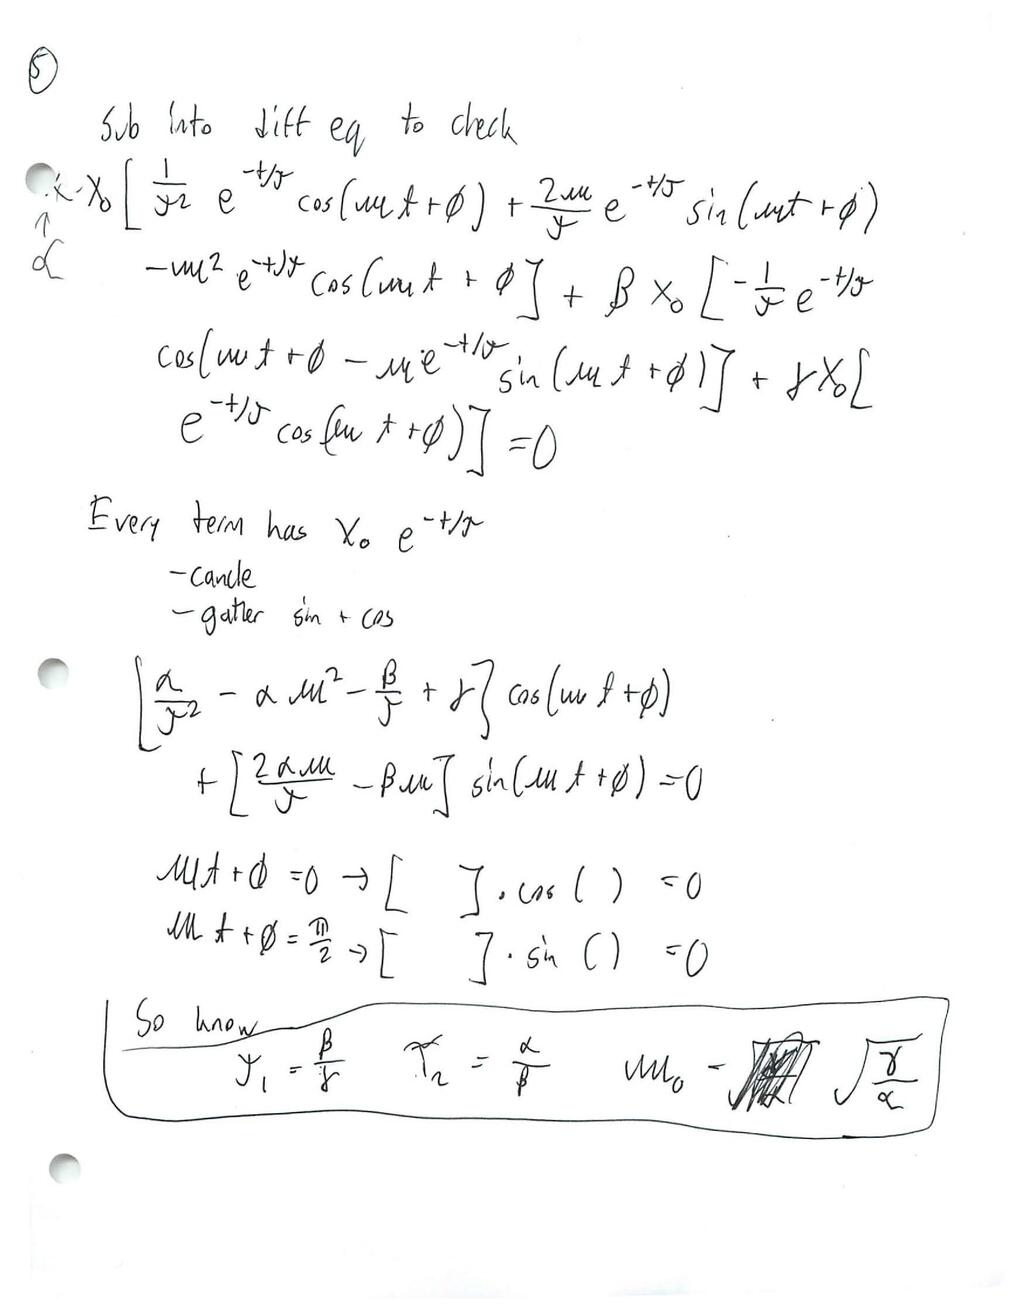 ⑤
Sub Into diff eq to check
α X₀ [ 1/τ² e^(-t/τ) cos(ωt+φ) + 2ω/τ e^(-t/τ) sin(ωt+φ)
α
-ω² e^(-t/τ) cos(ωt + φ ] + β X₀ [ -1/τ e^(-t/τ)
cos(ωt+φ - ω e^(-t/τ) sin(ωt+φ) ] + γX₀[
e^(-t/τ) cos(ωt+φ) ] =0
Every term has X₀ e^(-t/τ)
-cancle
-gather sin + cos
[ α/τ² - αω² - β/τ + γ ] cos(ωt+φ)
+ [ 2αω/τ - βω ] sin(ωt+φ) =0
ωt+φ =0 → [ ] · cos ( ) =0
ωt+φ = π/2 → [ ] · sin ( ) =0
So know
τ₁ = β/γ τ₂ = α/β ω₀ - √(γ/α)